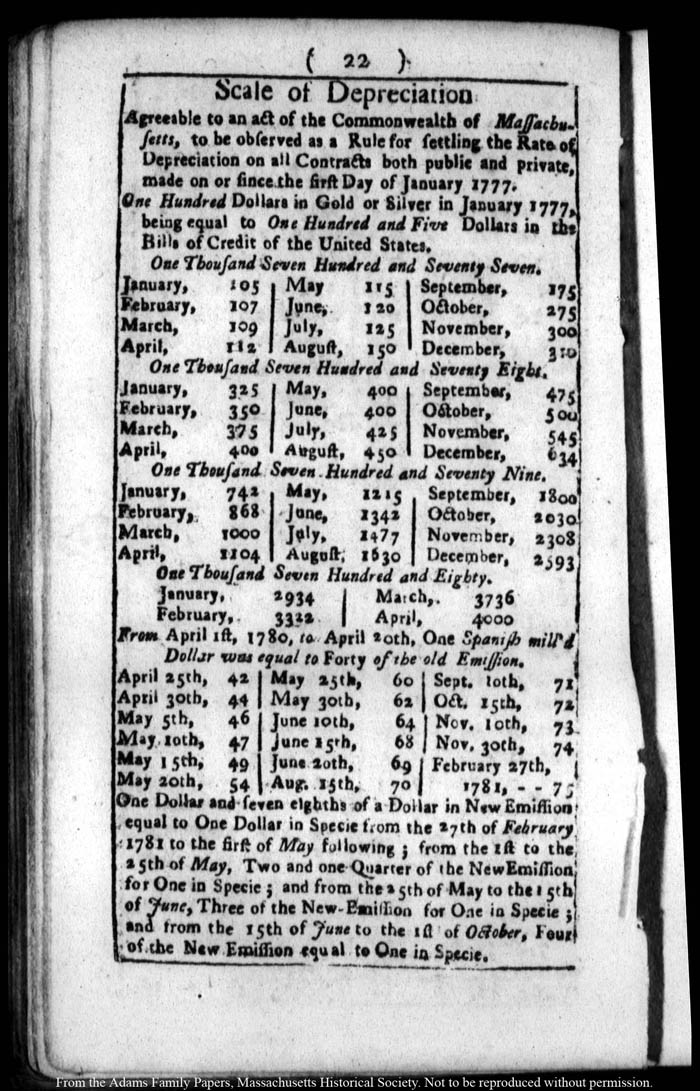 ( 22 )
Scale of Depreciation
Agreeable to an act of the Commonwealth of Maſſachu-
ſetts, to be obſerved as a Rule for ſettling the Rate of
Depreciation on all Contracts both public and private,
made on or ſince the firſt Day of January 1777.
One Hundred Dollars in Gold or Silver in January 1777,
being equal to One Hundred and Five Dollars in the
Bills of Credit of the United States.
One Thouſand Seven Hundred and Seventy Seven.
January, 105 May 115 September, 175
February, 107 June, 120 October, 275
March, 109 July, 125 November, 300
April, 112 Auguſt, 150 December, 310
One Thouſand Seven Hundred and Seventy Eight.
January, 325 May, 400 September, 475
February, 350 June, 400 October, 500
March, 375 July, 425 November, 545
April, 400 Auguſt, 450 December, 634
One Thouſand Seven Hundred and Seventy Nine.
January, 742 May, 1215 September, 1800
February, 868 June, 1342 October, 2030
March, 1000 July, 1477 November, 2308
April, 1104 Auguſt, 1630 December, 2593
One Thouſand Seven Hundred and Eighty.
January, 2934 March, 3736
February, 3322 April, 4000
From April 1ſt, 1780, to April 20th, One Spaniſh mill'd
Dollar was equal to Forty of the old Emiſſion.
April 25th, 42 May 25th, 60 Sept. 10th, 71
April 30th, 44 May 30th, 62 Oct. 15th, 72
May 5th, 46 June 10th, 64 Nov. 10th, 73
May 10th, 47 June 15th, 68 Nov. 30th, 74
May 15th, 49 June 20th, 69 February 27th,
May 20th, 54 Aug. 15th, 70 1781, - - 75
One Dollar and ſeven eighths of a Dollar in New Emiſſion
equal to One Dollar in Specie from the 27th of February
1781 to the firſt of May following ; from the 1ſt to the
25th of May, Two and one Quarter of the New Emiſſion
for One in Specie ; and from the 25th of May to the 15th
of June, Three of the New-Emiſſion for One in Specie ;
and from the 15th of June to the 1ſt of October, Four
of the New Emiſſion equal to One in Specie.
From the Adams Family Papers, Massachusetts Historical Society. Not to be reproduced without permission.